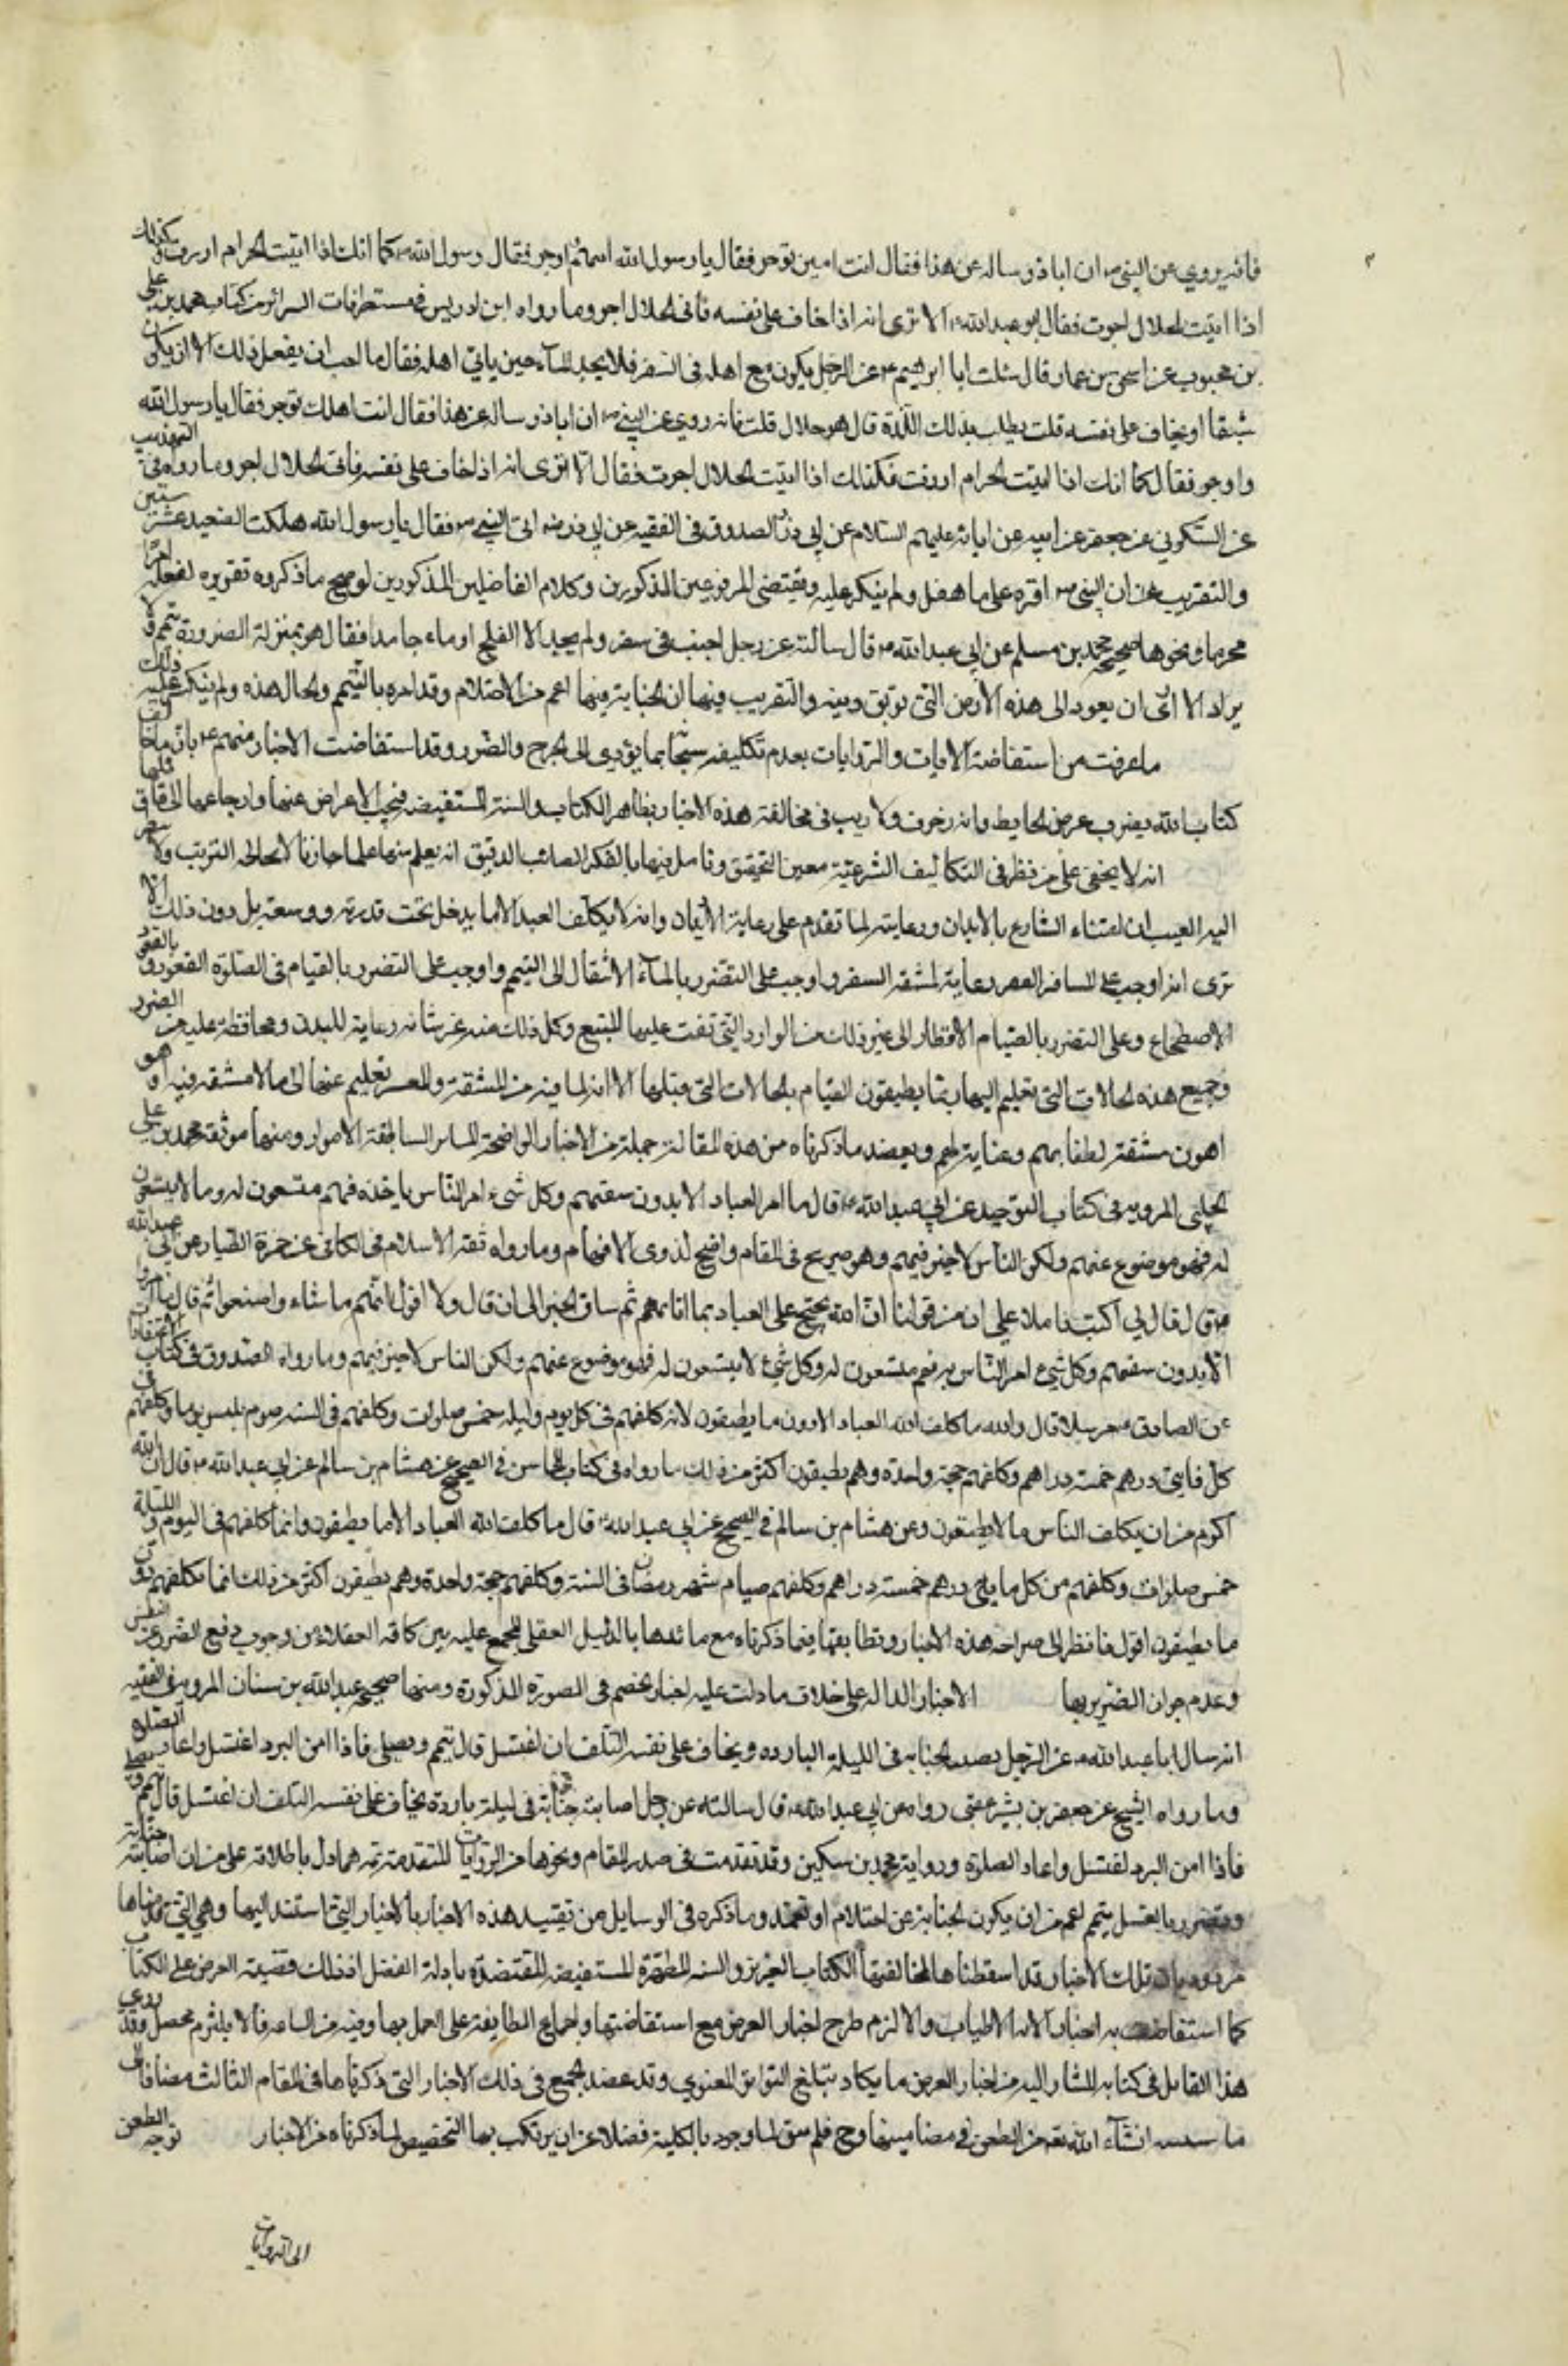 فانه يروي عن النبي ص ان اباذر ساله عن هذا فقال ائت اهلك توجر فقال يا رسول الله اتيهم واوجر فقال رسول الله ص كما انك اذا اتيت الحرام ازرت وكذلك
اذا اتيت الحلال اجرت فقال ابو عبد الله ع الا ترى انه اذا خاف على نفسه فاتى الحلال اجر وما رواه ابن ادريس في مستطرفات السرائر من كتاب محمد بن علي
بن محبوب عن اسحق بن عمار قال سئلت ابا ابرهيم ع عن الرجل يكون مع اهله في السفر فلا يجد الماء حين ياتي اهله فقال ما احب ان يفعل ذلك الا ان يكون
شبقا او يخاف على نفسه قلت يطلب بذلك اللذة قال هو حلال قلت فانه روي عن النبي ص ان اباذر ساله عن هذا فقال ائت اهلك توجر فقال يا رسول الله
واوجر فقال كما انك اذا اتيت الحرام ازرت فكذلك اذا اتيت الحلال اجرت فقال الا ترى انه اذا خاف على نفسه فاتى الحلال اجر وما رواه في التهذيب
عن السكوني عن جعفر عن ابيه عن ابائه عليهم السلام عن ابي ذر والصدوق في الفقيه عن ابي ذر رضه اتى النبي ص فقال يا رسول الله هلكت الصعيد عشر سنين
والتقريب ان النبي ص اقره على ما فعل ولم ينكر عليه ومقتضى المرفوعين المذكورين وكلام الفاضلين المذكورين لو صح ما ذكروه تقريره لفعله امرا
محرما ونحوها صحيحة محمد بن مسلم عن ابي عبد الله ع قال سالته عن رجل اجنب في سفر ولم يجد الا الثلج او ماء جامدا فقال هو بمنزلة الضرورة يتمم ولا
يرى الا ارى ان يعود الى هذه الارض التي توبق دينه والتقريب فيها ان الجنابة فيها اعم من الاحتلام وقد امره بالتيمم والحال هذه ولم ينكر عليه ذلك
ما عرفت من استفاضة الايات والروايات بعدم تكليفه سبحانه بما يؤدى الى الحرج والضرر وقد استفاضت الاخبار منهم ع بان ما خالف
كتاب الله يضرب عرض الحايط وانه زخرف ولا ريب في مخالفة هذه الاخبار بظاهر الكتاب والسنة المستفيضة فيجب الاعراض عنها وارجاعها الى قائلها
انه لا يخفى على من نظر في التكاليف الشرعية بعين التحقيق وتامل فيها بالفكر الصائب الدقيق انه يعلم منها علما جازما لا يخالجه الريب ولا
اليه العيب ان اعتناء الشارع بالابدان ورعايته لها تقدم على رعاية الاديان وانه لا يكلف العبد الا ما يدخل تحت قدرته ووسعه بل دون ذلك الا
ترى انه اوجب على المسافر القصر رعاية لمشقة السفر واوجب على المتضرر بالماء الانتقال الى التيمم واوجب على المتضرر بالقيام في الصلوة القعود و بالقعود
الاضطجاع وعلى المتضرر بالصيام الافطار الى غير ذلك من الموارد التي تقف عليها بالتتبع وكل ذلك منه عز شانه رعاية للبدن ومحافظة عليه من الضرر
وجميع هذه الحالات التي نقلهم اليها ربما يطيقون القيام بالحالات التي قبلها الا انه لما فيه من المشقة والعسر نقلهم عنها الى ما لا مشقة فيه او هو
اهون مشقة لطفا بهم وعناية لهم ويعضد ما ذكرناه من هذه المقالة جملة من الاخبار الواضحة المنار الساطعة الانوار ومنها موثقة محمد بن علي
الحلبي المروية في كتاب التوحيد عن ابي عبد الله ع قال ما امر العباد الا بدون سعتهم وكل شيء امر الناس باخذه فهم متسعون له وما لا يتسعون
له فهو موضوع عنهم ولكن الناس لا خير فيهم وهو صريح في المقام واضح لذوى الافهام وما رواه ثقة الاسلام في الكافي عن حمزة الطيار عن ابي عبد الله
ع قال قال لي اكتب فاملا علي ان من قولنا ان الله يحتج على العباد بما اتاهم ثم ساق الخبر الى ان قال ولا اقول انهم ما شاؤا صنعوا ثم قال وما امروا
الا بدون سعتهم وكل شيء امر الناس به فهم متسعون له وكل شيء لا يتسعون له فهو موضوع عنهم ولكن الناس لا خير فيهم وما رواه الصدوق في كتاب الاعتقادات
عن الصادق ع مرسلا قال والله ما كلف الله العباد الا دون ما يطيقون لانه كلفهم في كل يوم وليلة خمس صلوات وكلفهم في السنة صوم ثلثين يوما وكلفهم في
كل مايتي درهم خمسة دراهم وكلفهم حجة واحدة وهم يطيقون اكثر من ذلك ما رواه في كتاب المحاسن في الصحيح عن هشام بن سالم عن ابي عبد الله ع قال ان الله
اكرم من ان يكلف الناس ما لا يطيقون وعن هشام بن سالم في الصحيح عن ابي عبد الله ع قال ما كلف الله العباد الا ما يطيقون وانما كلفهم في اليوم والليلة
خمس صلوات وكلفهم من كل مايتي درهم خمسة دراهم وكلفهم صيام شهر رمضان في السنة وكلفهم حجة واحدة وهم يطيقون اكثر من ذلك انما كلفهم دون
ما يطيقون اقول فانظر الى صراحة هذه الاخبار وتطابقها فيما ذكرناه مع تائدها بالدليل العقلي المجمع عليه بين كافة العقلاء من وجوب دفع الضرر عن النفس
وعدم جواز التغرير بها الاخبار الدالة على خلاف ما دلت عليه اخبار الخصم في الصورة المذكورة ومنها صحيحة عبد الله بن سنان المروية في الفقيه
انه سال ابا عبد الله ع عن الرجل تصيبه الجنابة في الليلة الباردة ويخاف على نفسه التلف ان اغتسل قال يتيمم ويصلى فاذا امن البرد اغتسل واعاد الصلوة
وما رواه الشيخ عن جعفر بن بشير عمن رواه عن ابي عبد الله ع قال سالته عن رجل اصابته جنابة في ليلة باردة يخاف على نفسه التلف ان اغتسل قال يتيمم ويصلى
فاذا امن البرد اغتسل واعاد الصلوة ورواية محمد بن سكين وقد تقدمت في صدر المقام ونحوها من الروايات المتقدمة ثمة مما دل باطلاقه على من ان اصابته جنابة
وتضرر بالغسل يتيمم اعم من ان يكون الجنابة عن احتلام او تعمد وما ذكره في الوسايل من تقييد هذه الاخبار بالاخبار التي استند اليها وهي التي قدمناها
مردود بان تلك الاخبار قد اسقطناها لمخالفتها الكتاب العزيز والسنة المطهرة المستفيضة المعتضدة بادلة العقل اذ ذلك قضية العرض على الكتاب
كما استفاضت به اخبار الال الاطياب والا لزم طرح اخبار العرض مع استفاضتها واجماع الطايفة على العمل بها وفيه من الشناعة ما لا يلتزمه محصل وقد روى
هذا القائل في كتابه المشار اليه من اخبار العرض ما يكاد يبلغ التواتر المعنوي وقد عضد الجميع في ذلك الاخبار التي ذكرناها في المقام الثالث مضافا الى
ما انشاء الله تعه من الطعن في مضامينها وح فلم يبق لها وجود بالكلية فضلا عن ان يرتكب بها التخصيص لما ذكرناه من الاخبار توجه الطعن
الى الروايات